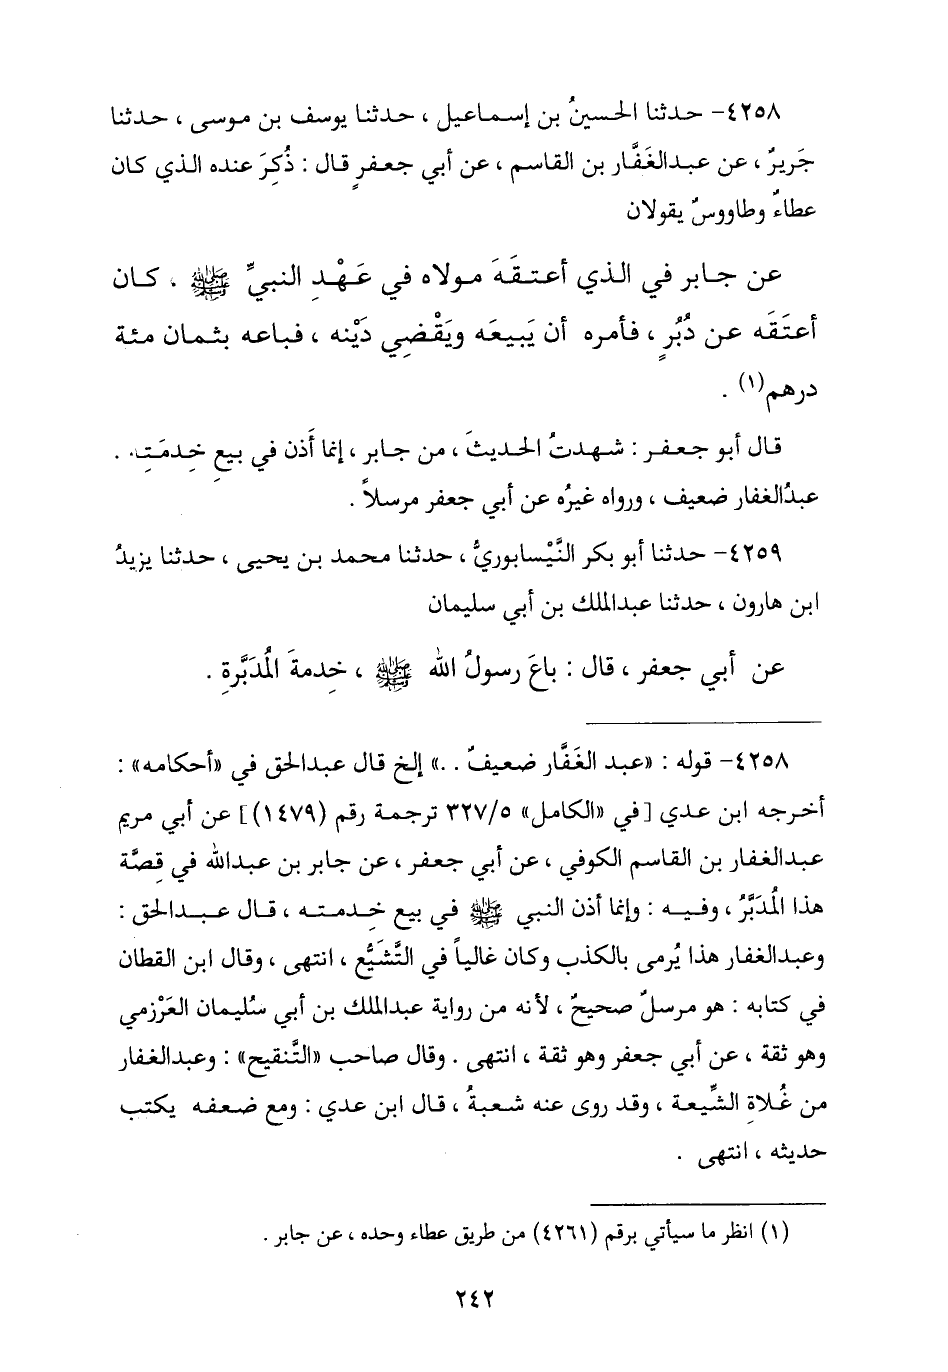 ٤٢٥٨- حدثنا الحسينُ بن إسماعيل ، حدثنا يوسف بن موسى ، حدثنا
جَريرٌ ، عن عبدالغَفَّار بن القاسم ، عن أبي جعفرٍ قال : ذُكِرَ عنده الذي كان
عطاءٌ وطاووسٌ يقولان
عن جابر في الذي أعتـقَـهَ مـولاه في عَـهْـدِ النبيِّ ﷺ ، كـان
أعتَقَه عـن دُبُرٍ ، فـأمره أن يَبيعَه ويَقْضيَ دَيْنه ، فـباعه بثـمان مئـة
درهم(١) .
قال أبو جعـفـر : شـهدتُ الحديثَ ، من جـابر ، إنما أَذن في بيعِ خِدمَتِهِ .
عبدُالغفار ضعيف ، ورواه غيرُه عن أبي جعفر مرسلاً .
٤٢٥٩- حدثنا أبو بكر النَّيْسابوريُّ ، حدثنا محمد بن يحيى ، حدثنا يزيدُ
ابن هارون ، حدثنا عبدالملك بن أبي سليمان
عن أبي جعفر ، قال : باعَ رسولُ الله ﷺ ، خِدمةَ المُدَبَّرةِ .
٤٢٥٨- قوله : «عبد الغَفَّار ضعيفٌ . .» إلخ قال عبدالحق في «أحكامه» :
أخرجه ابن عدي [في «الكامل» ٣٢٧/٥ ترجمة رقم (١٤٧٩)] عن أبي مريم
عبدالغفار بن القاسم الكوفي ، عن أبي جعفر ، عن جابر بن عبدالله في قصَّة
هذا المُدَبَّرُ ، وفـيـه : وإنما أذن النبي ﷺ في بيع خـدمـتـه ، قـال عـبـدالحق :
وعبدالغفار هذا يُرمى بالكذب وكان غالياً في التَّشَيُّع ، انتهى ، وقال ابن القطان
في كتابه : هو مرسلٌ صحيحٌ ، لأنه من رواية عبدالملك بن أبي سُليمان العَرْزمي
وهو ثقة ، عن أبي جعفر وهو ثقة ، انتهى . وقال صاحب «التَّنقيح» : وعبدالغفار
من غُلاةِ الشِّيعة ، وقد روى عنه شعبةُ ، قال ابن عدي : ومع ضعـفه يكتب
حديثه ، انتهى .
(١) انظر ما سيأتي برقم (٤٢٦١) من طريق عطاء وحده ، عن جابر .
٢٤٢